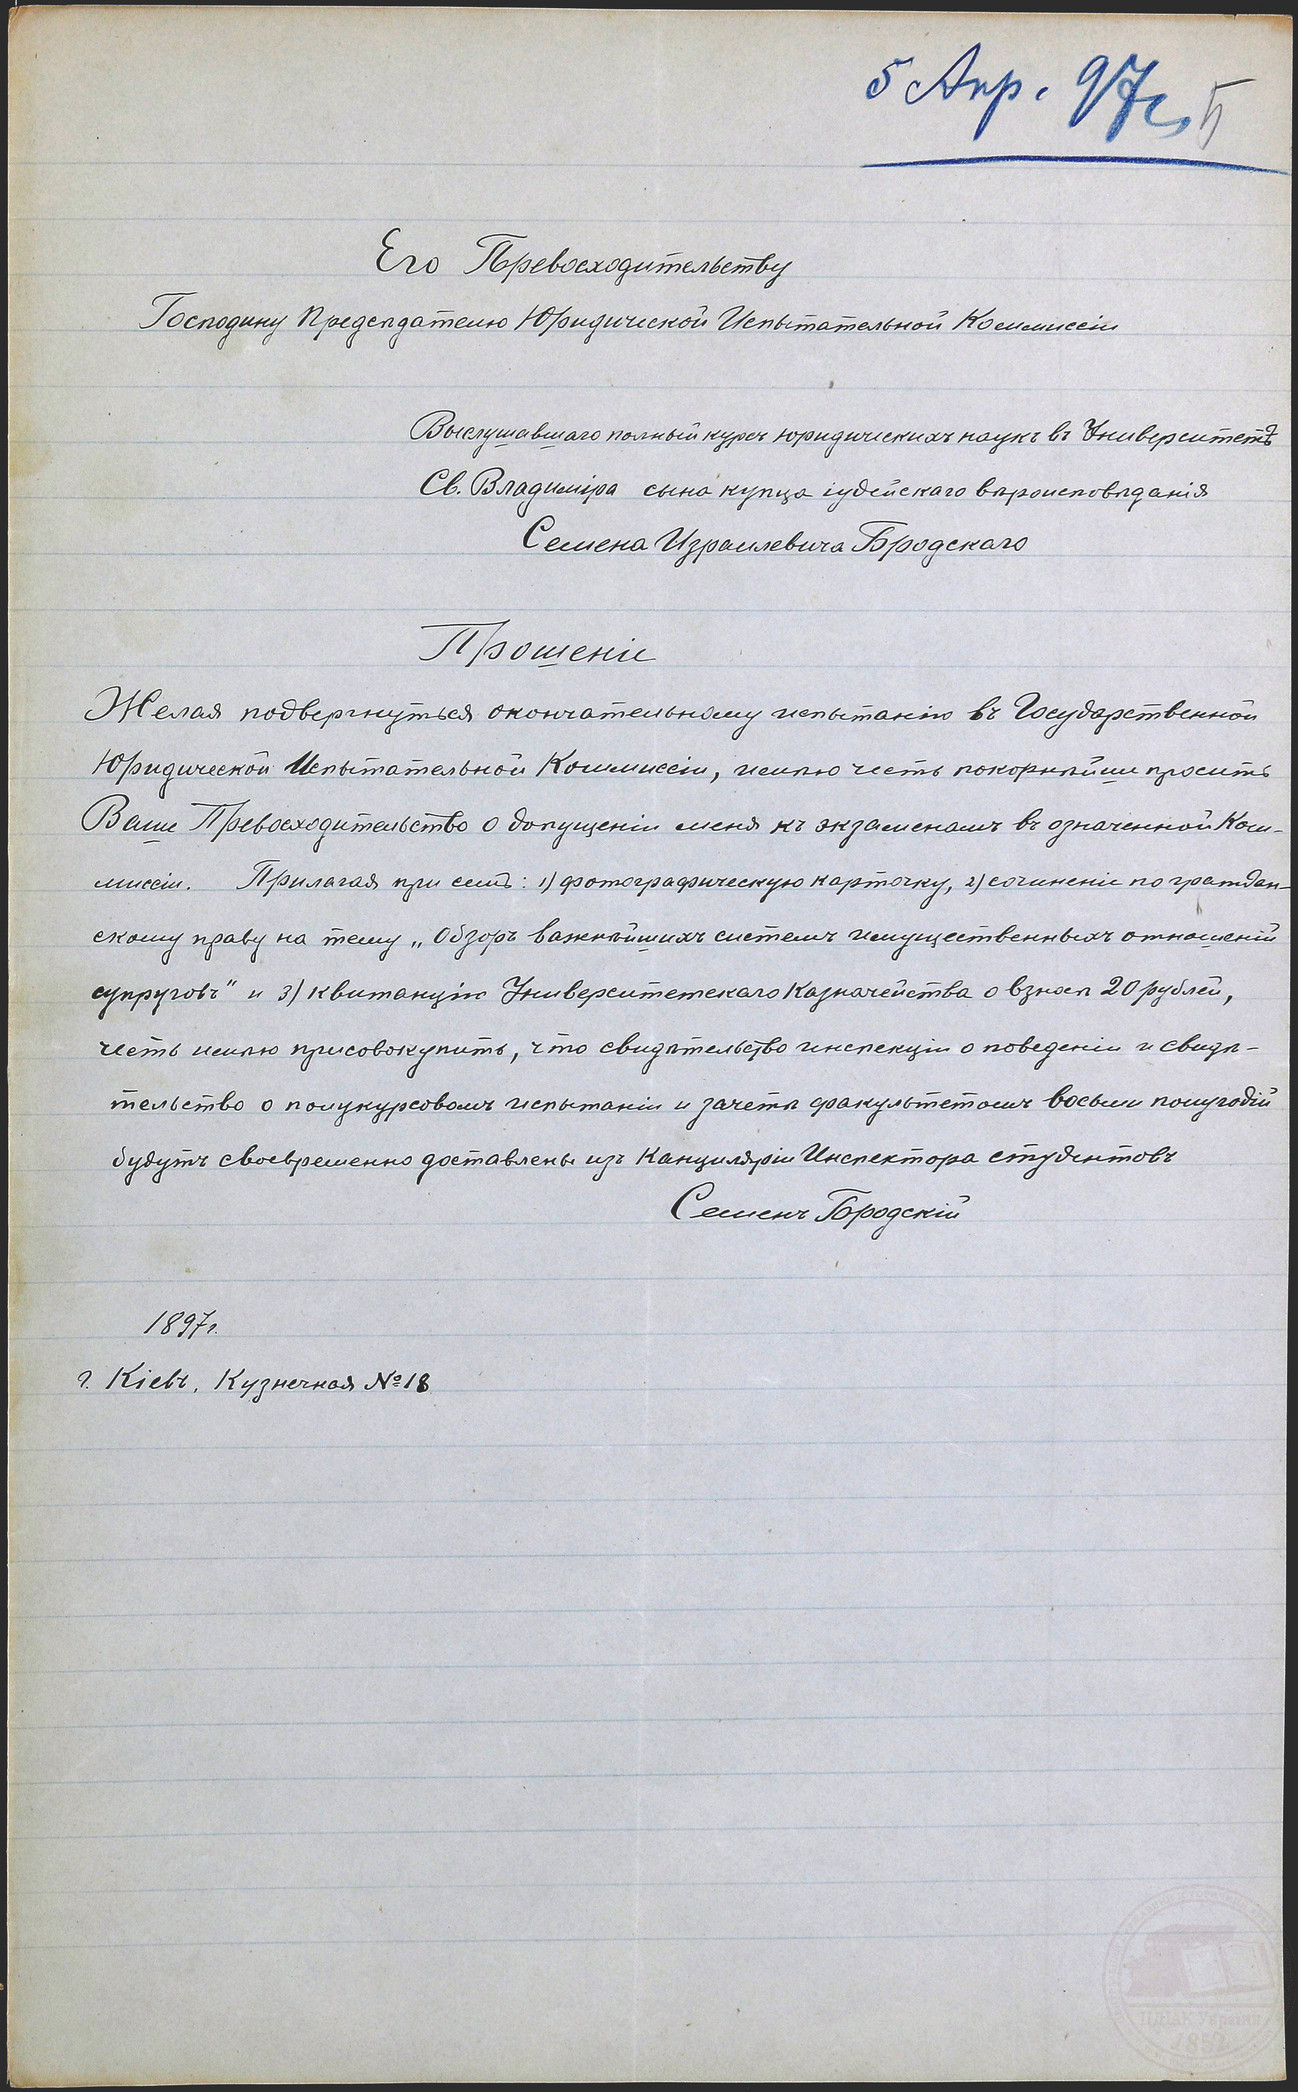 5 Апр. 97 г. 5
Его Превосходительству
Господину Предсѣдателю Юридической Испытательной Коммиссіи
Выслушавшаго полный курсъ юридическихъ наукъ въ Университетѣ
Св. Владиміра сына купца іудейскаго вѣроисповѣданія
Семена Израилевича Бродскаго
Прошеніе
Желая подвергнуться окончательному испытанію въ Государственной
Юридической Испытательной Коммиссіи, имѣю честь покорнѣйше просить
Ваше Превосходительство о допущеніи меня къ экзаменамъ въ означенной Ком-
миссіи. Прилагая при семъ: 1) фотографическую карточку, 2) сочиненіе по граждан-
скому праву на тему „Обзоръ важнѣйшихъ системъ имущественныхъ отношеній
супруговъ" и 3) квитанцію Университетскаго Казначейства о взносѣ 20 рублей,
честь имѣю присовокупить, что свидѣтельство инспекціи о поведеніи и свидѣ-
тельство о полукурсовомъ испытаніи и зачетѣ факультетомъ восьми полугодій
будутъ своевременно доставлены изъ Канцеляріи Инспектора студентовъ
Семенъ Бродскій
1897 г.
г. Кіевъ, Кузнечная № 18
ЦДІАК України
1852